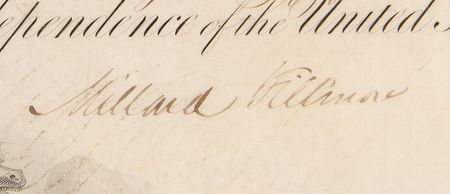 ependence of the United
Millard Fillmore